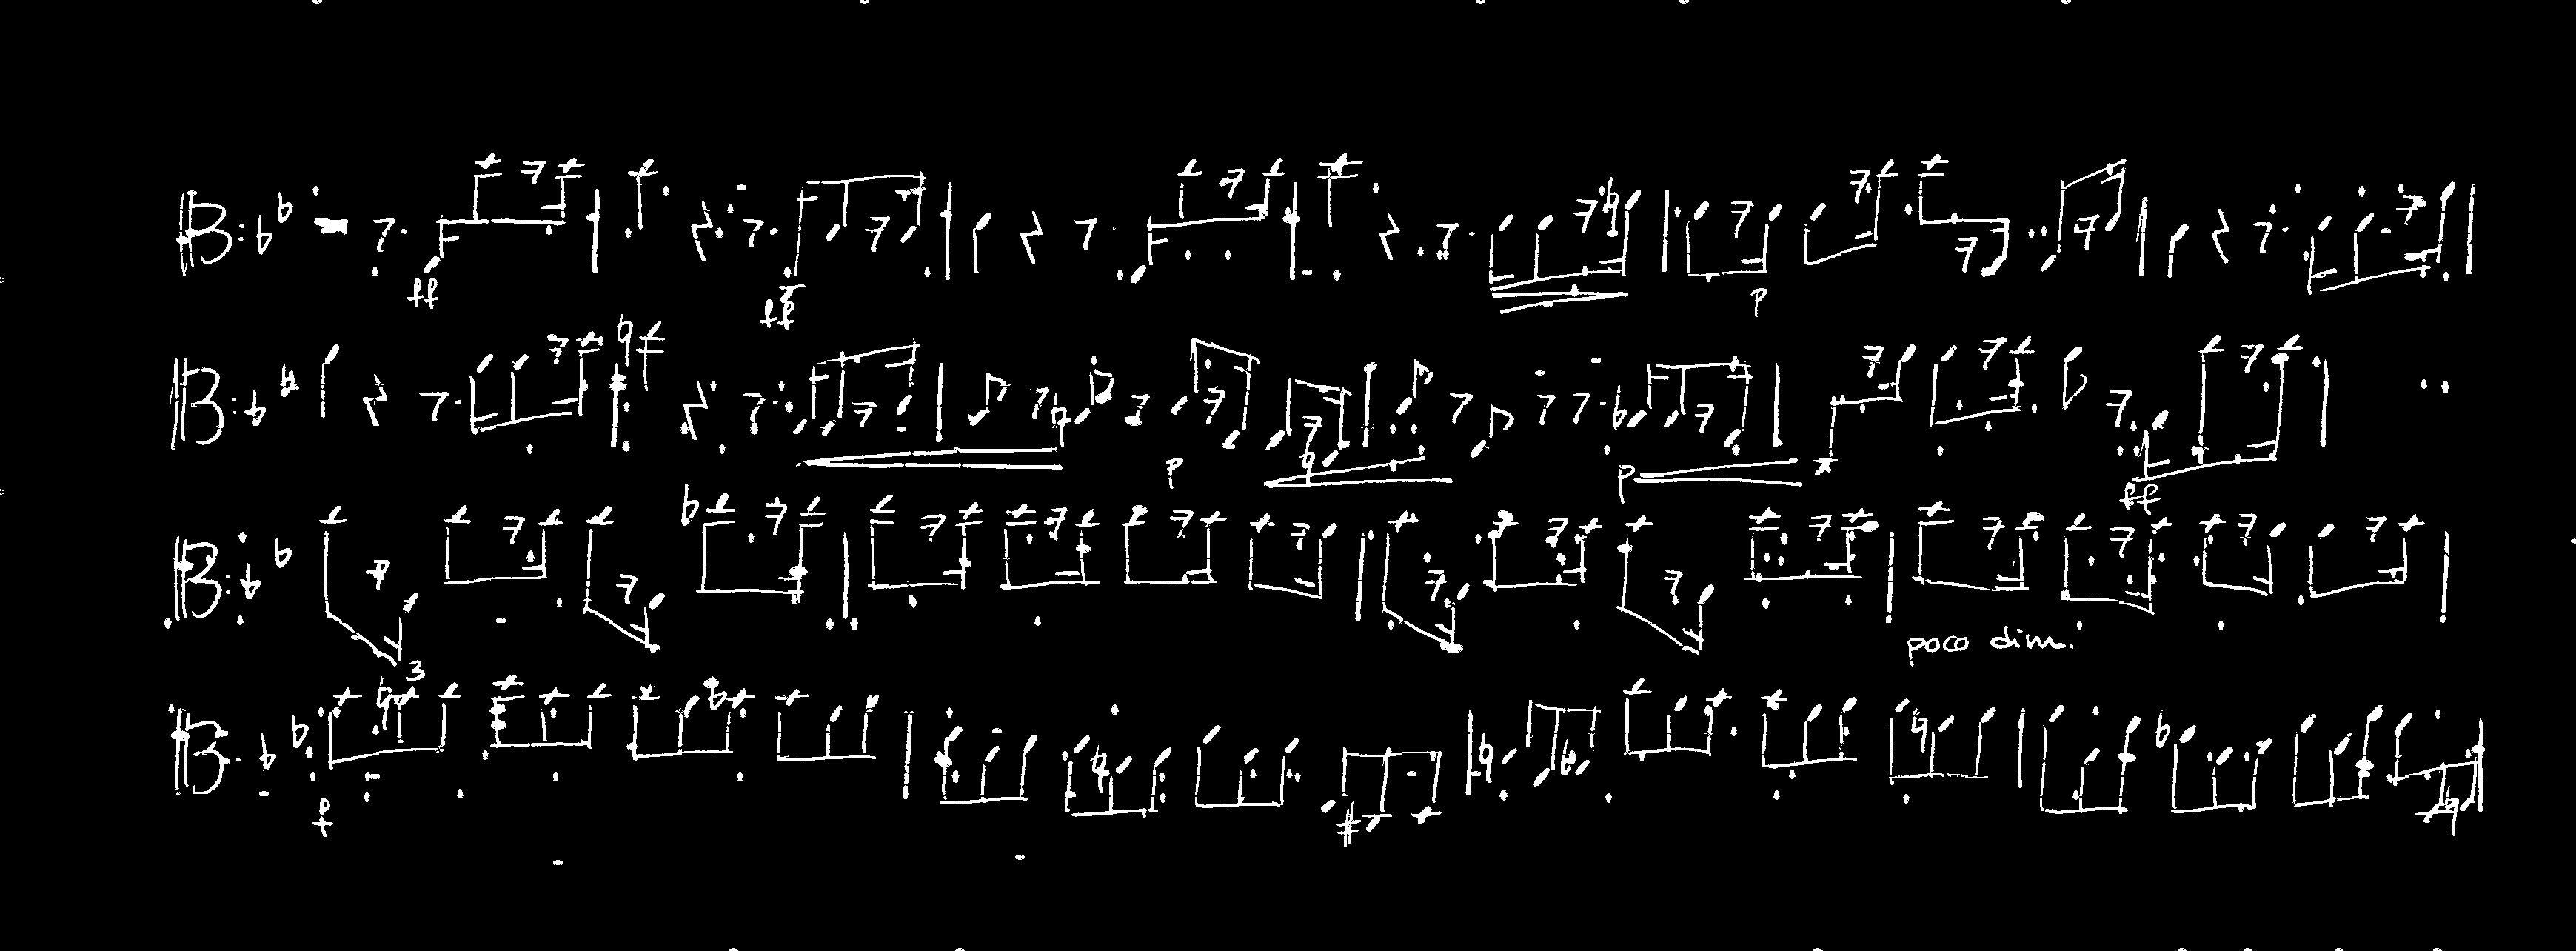 ff ff p
p p ff
poco dim.
3
f